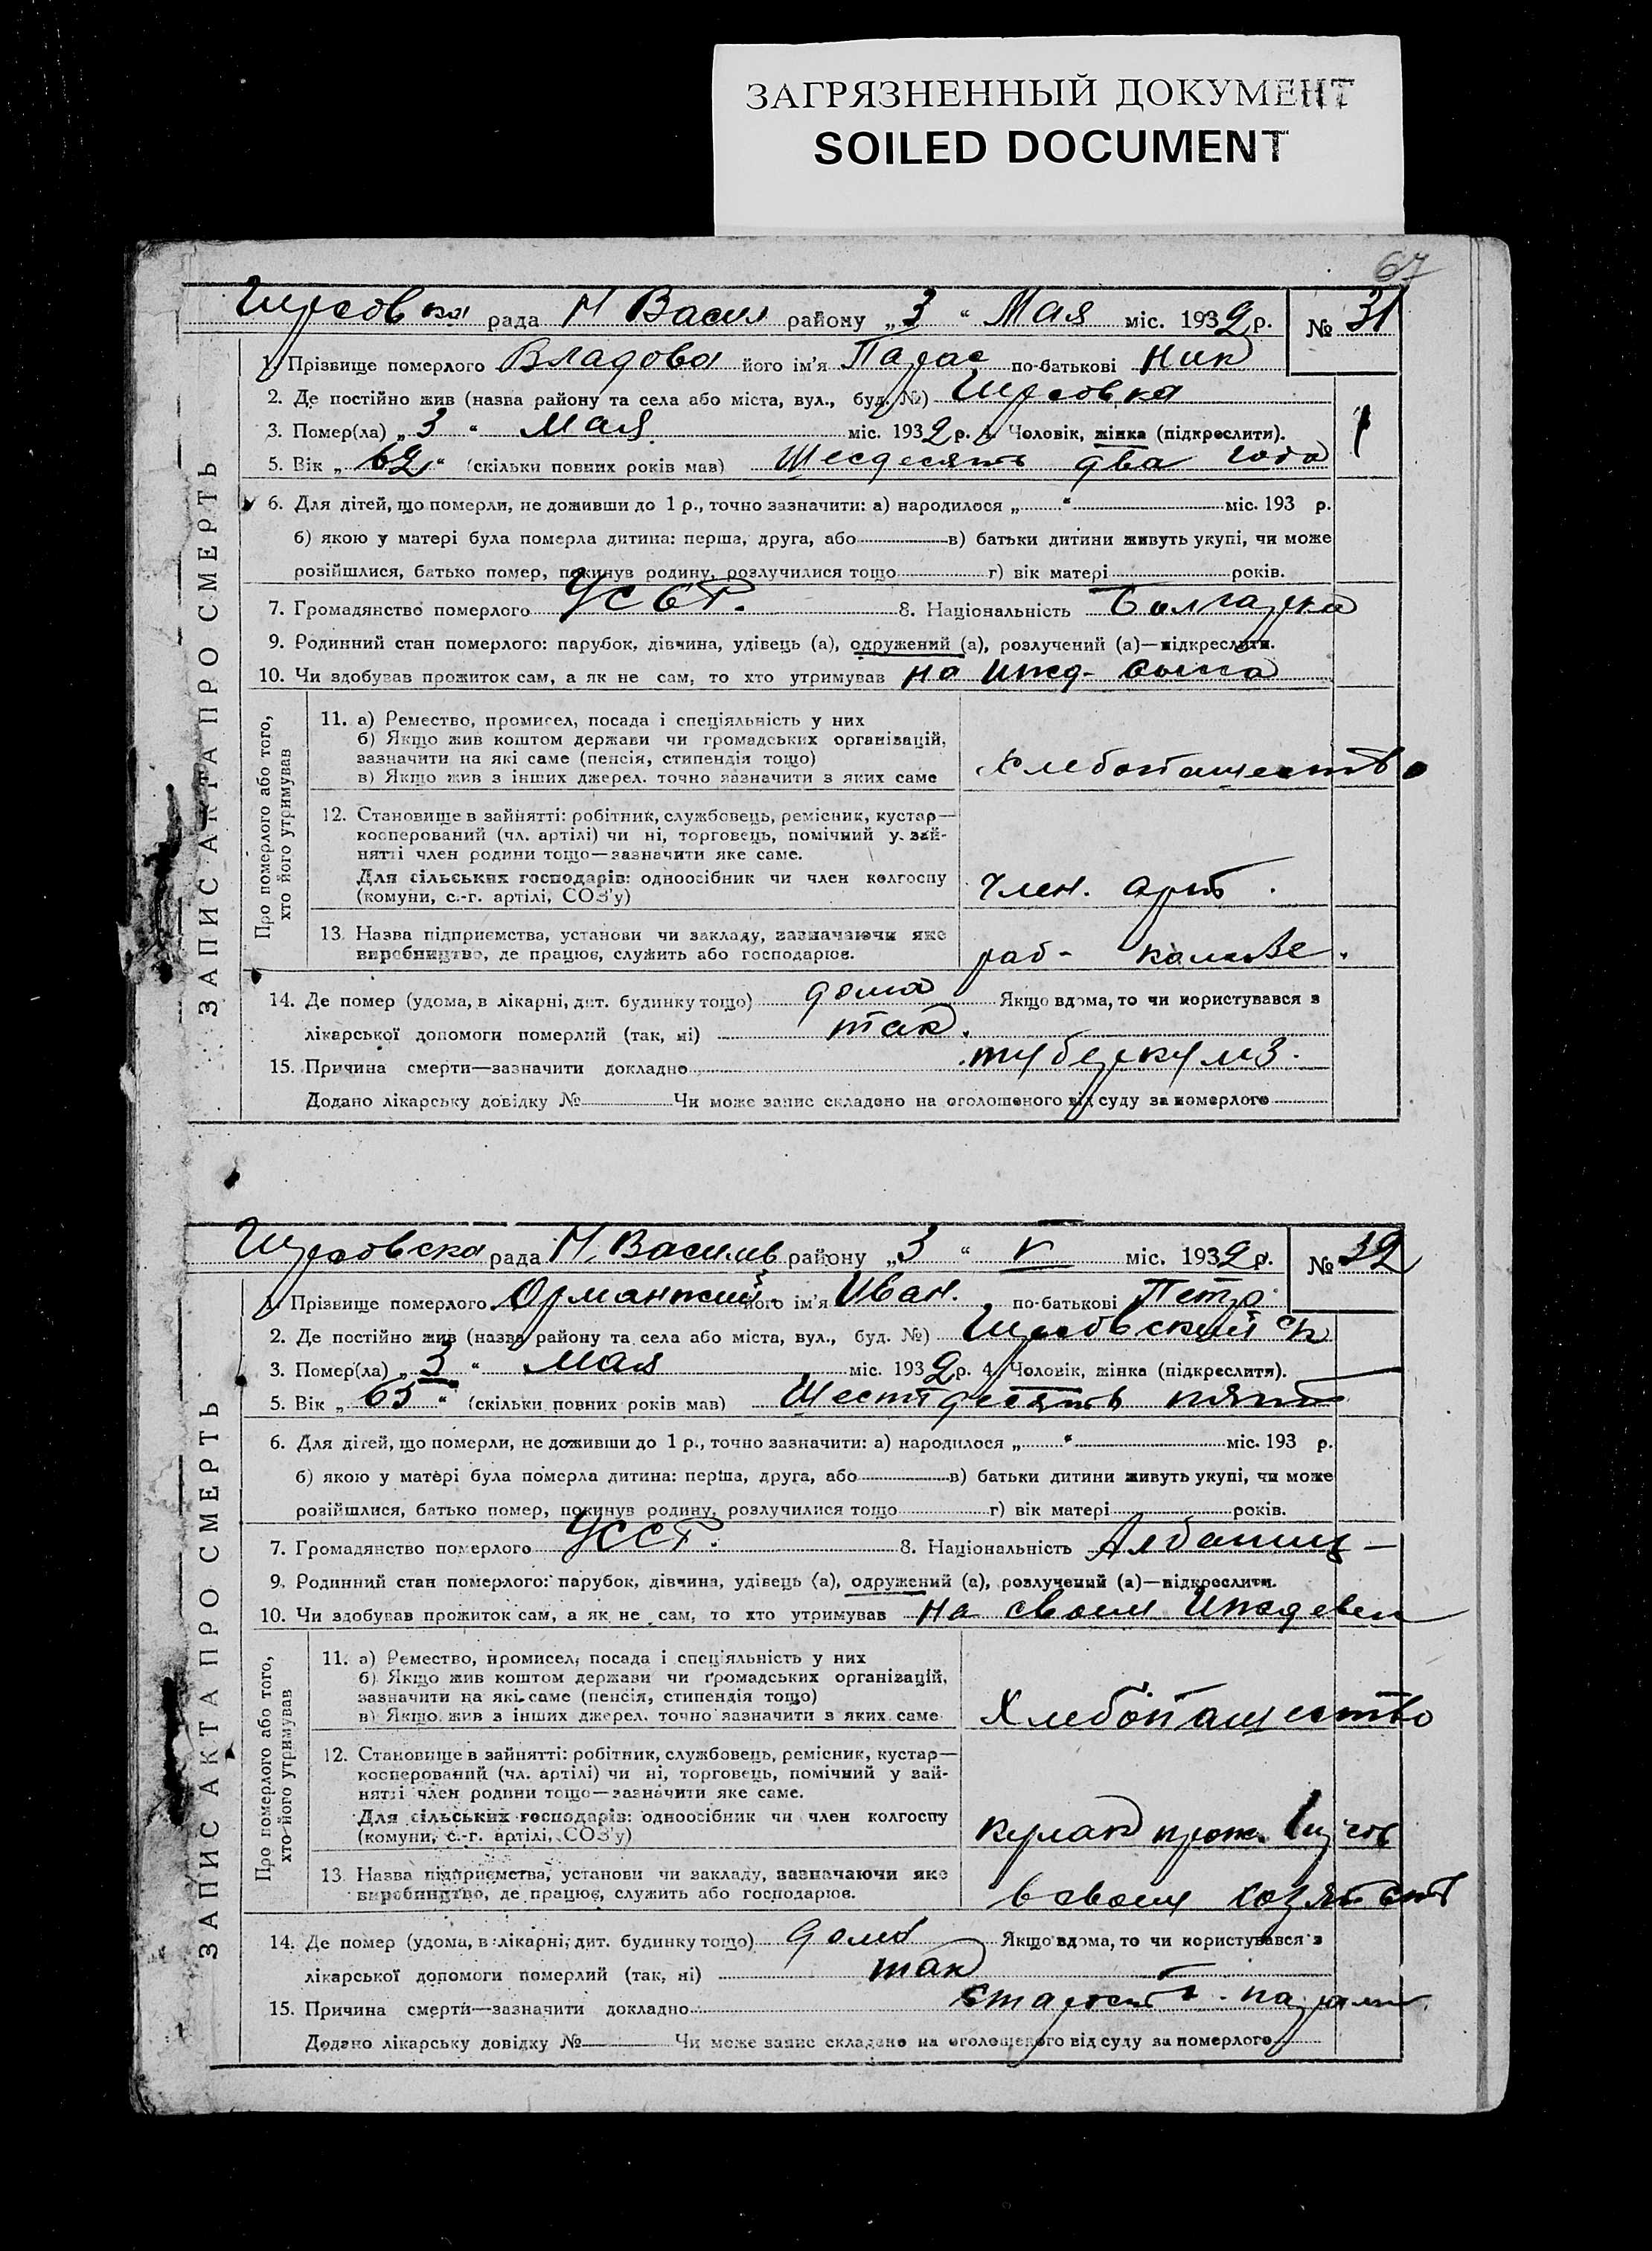 ЗАГРЯЗНЕННЫЙ ДОКУМЕНТ
SOILED DOCUMENT
67
рада Н Васил району „3“ Мая міс. 1932 р. № 31
1. Прізвище померлого Владова його ім'я Парас по-батькові Ник
2. Де постійно жив (назва району та села або міста, вул., буд. №)
3. Помер(ла) „3“ Мая міс. 1932 р. 4. Чоловік, жінка (підкреслити).
5. Вік „62“ (скільки повних років мав) Шесдесять два года
6. Для дітей, що померли, не доживши до 1 р., точно зазначити: а) народилося „ “ міс. 193 р.
б) якою у матері була померла дитина: перша, друга, або в) батьки дитини живуть укупі, чи може
розійшлися, батько помер, покинув родину, розлучилися тощо г) вік матері років.
7. Громадянство померлого УССР. 8. Національність Болгарка
9. Родинний стан померлого: парубок, дівчина, удівець (а), одружений (а), розлучений (а)—підкреслити.
10. Чи здобував прожиток сам, а як не сам, то хто утримував на ижд- сына
ЗАПИС АКТА ПРО СМЕРТЬ
Про померлого або того, хто його утримував
11. а) Ремество, промисел, посада і спеціяльність у них
б) Якщо жив коштом держави чи громадських організацій,
зазначити на які саме (пенсія, стипендія тощо)
в) Якщо жив з інших джерел. точно зазначити з яких саме
Хлебопашество
12. Становище в зайнятті: робітник, службовець, ремісник, кустар—
косперований (чл. артілі) чи ні, торговець, помічний у зай-
нятті член родини тощо—зазначити яке саме.
Для сільських господарів: одноосібник чи член колгоспу
(комуни, с.-г. артілі, СОЗ'у)
член. арт.
13. Назва підприємства, установи чи закладу, зазначаючи яке
виробництво, де працює, служить або господарює.
раб-
14. Де помер (удома, в лікарні, дит. будинку тощо) дома Якщо вдома, то чи користувався з
лікарської допомоги померлий (так, ні) так.
15. Причина смерти—зазначити докладно туберкулз.
Додано лікарську довідку № Чи може запис складено на оголошеного від суду за померлого
рада Н. Василів району „3“ V міс. 1932 р. № 32
1. Прізвище померлого Орманжий його ім'я Иван. по-батькові Петр
2. Де постійно жив (назва району та села або міста, вул., буд. №)
3. Помер(ла) „3“ Мая міс. 1932 р. 4. Чоловік, жінка (підкреслити).
5. Вік „65“ (скільки повних років мав) Шестдесять пять
6. Для дітей, що померли, не доживши до 1 р., точно зазначити: а) народилося „ “ міс. 193 р.
б) якою у матері була померла дитина: перша, друга, або в) батьки дитини живуть укупі, чи може
розійшлися, батько помер, покинув родину, розлучилися тощо г) вік матері років.
7. Громадянство померлого УССР. 8. Національність Албаниц
9. Родинний стан померлого: парубок, дівчина, удівець (а), одружений (а), розлучений (а)—підкреслити.
10. Чи здобував прожиток сам, а як не сам, то хто утримував на своем
ЗАПИС АКТА ПРО СМЕРТЬ
Про померлого або того, хто його утримував
11. а) Ремество, промисел, посада і спеціяльність у них
б) Якщо жив коштом держави чи громадських організацій,
зазначити на які саме (пенсія, стипендія тощо)
в) Якщо жив з інших джерел. точно зазначити з яких саме
Хлебопашество
12. Становище в зайнятті: робітник, службовець, ремісник, кустар—
косперований (чл. артілі) чи ні, торговець, помічний у зай-
нятті член родини тощо—зазначити яке саме.
Для сільських господарів: одноосібник чи член колгоспу
(комуни, с.-г. артілі, СОЗ'у)
кулак
13. Назва підприємства, установи чи закладу, зазначаючи яке
виробництво, де працює, служить або господарює.
в своем
14. Де помер (удома, в лікарні, дит. будинку тощо) дома Якщо вдома, то чи користувався з
лікарської допомоги померлий (так, ні) так
15. Причина смерти—зазначити докладно старость
Додано лікарську довідку № Чи може запис складено на оголошеного від суду за померлого